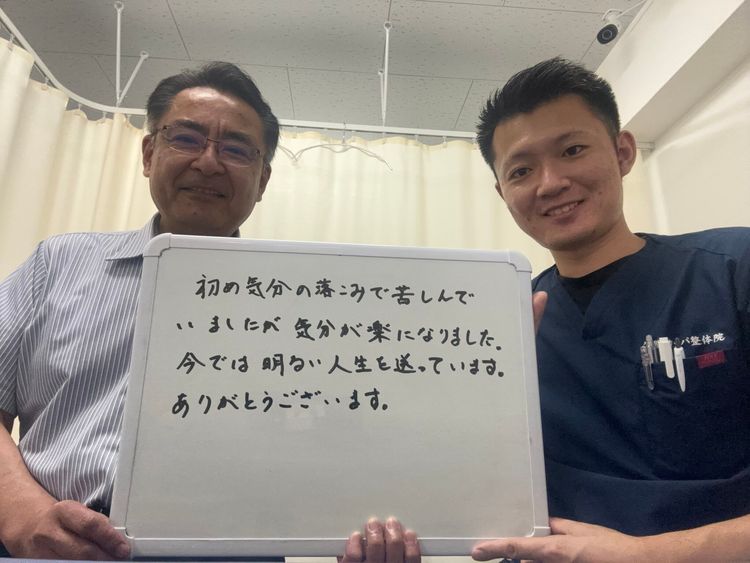 初め気分の落こみで苦しんで
いましたが気分が楽になりました。
今では明るい人生を送っています。
ありがとうございます。
パ整体院